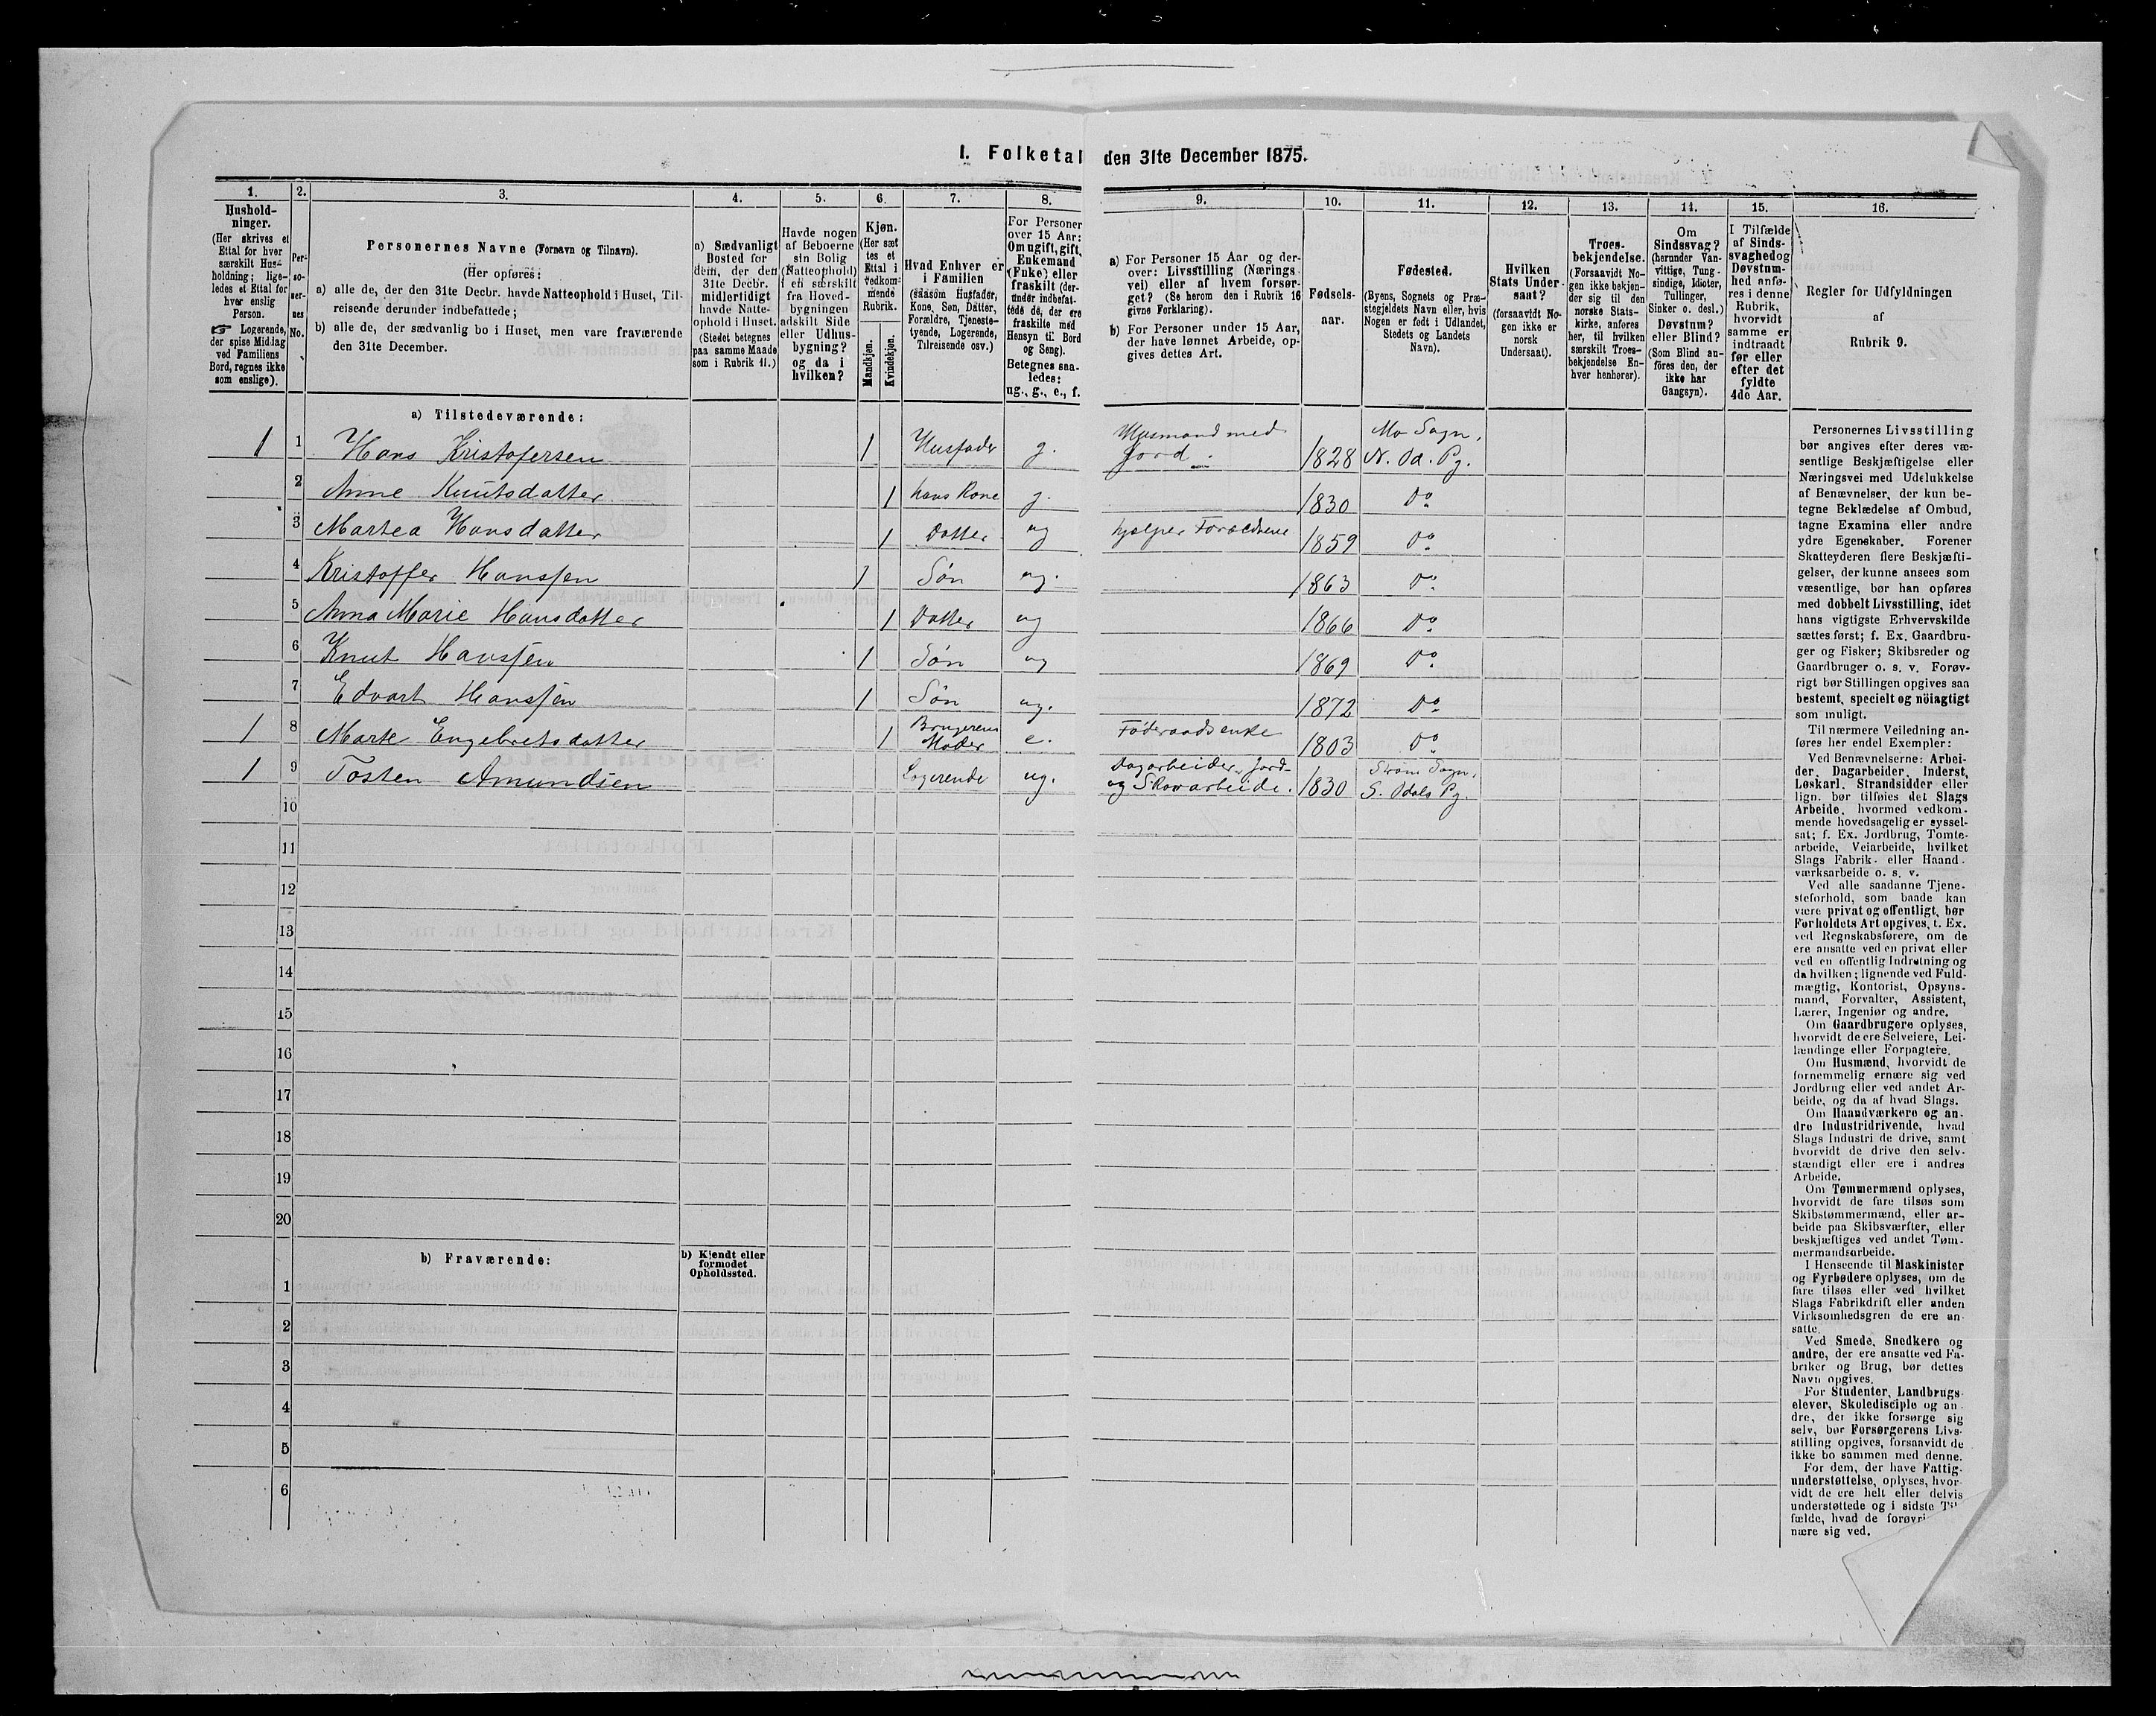 I. Folketal den 31te December 1875.
1.
Hushold-
ninger.
(Her skrives et
Ettal for hver
særskilt Hus-
holdning; lige-
ledes et Ettal for
hver enslig
Person.
☞ Logerende,
der spise Middag
ved Familiens
Bord, regnes ikke
som enslige).
2.
Per-
so-
ner-
nes
No.
3.
Personernes Navne (Fornavn og Tilnavn).
(Her opføres:
a) alle de, der den 31te Decbr. havde Natteophold i Huset, Til-
reisende derunder indbefattede;
b) alle de, der sædvanlig bo i Huset, men vare fraværende
den 31te December.
4.
a) Sædvanligt
Bosted for
dem, der den
31te Decbr.
midlertidigt
havde Natte-
ophold i Huset.
(Stedet betegnes
paa samme Maade
som i Rubrik 11.)
5.
Havde nogen
af Beboerne
sin Bolig
(Natteophold)
i en særskilt
fra Hoved-
bygningen
adskilt Side
eller Udhus-
bygning?
og da i
hvilken?
6.
Kjøn.
(Her sæt
tes et
Ettal i
vedkom-
mende
Rubrik.
Mandkjøn.
Kvindekjøn.
7.
Hvad Enhver er
i Familien
(saasom Husfader,
Kone, Søn, Datter,
Forældre, Tjeneste-
tyende, Logerende,
Tilreisende osv.)
8.
For Personer
over 15 Aar:
Om ugift, gift,
Enkemand
(Enke) eller
fraskilt (der-
under indbefat-
tede de, der ere
fraskilte med
Hensyn til Bord
og Seng).
Betegnes saa-
ledes:
ug., g., e., f.
9.
a) For Personer 15 Aar og der-
over: Livsstilling (Nærings-
vei) eller af hvem forsør-
get? (Se herom den i Rubrik 16
givne Forklaring).
b) For Personer under 15 Aar,
der have lønnet Arbeide, op-
gives dettes Art.
10.
Fødsels-
aar.
11.
Fødested.
(Byens, Sognets og Præ-
stegjeldets Navn eller, hvis
Nogen er født i Udlandet,
Stedets og Landets
Navn).
12.
Hvilken
Stats Under-
saat?
(forsaavidt No-
gen ikke er
norsk
Undersaat).
13.
Troes-
bekjendelse.
(Forsaavidt No-
gen ikke bekjen-
der sig til den
norske Stats-
kirke, anføres
her, til hvilken
særskilt Troes-
bekjendelse En-
hver henhører).
14.
Om
Sindssvag?
(herunder Van-
vittige, Tung-
sindige, Idioter,
Tullinger,
Sinker o. desl.)
Døvstum?
eller Blind?
(Som Blind an-
føres den, der
ikke har
Gangsyn).
15.
I Tilfælde
af Sinds-
svaghed og
Døvstum-
hed anfø-
res i denne
Rubrik,
hvorvidt
samme er
indtraadt
før eller
efter det
fyldte
4de Aar.
16.
Regler for Udfyldningen
af
Rubrik 9.
a) Tilstedeværende:
1 1 Hans Kristofersen 1 Husfader g. Husmand med Jord. 1828 Mo Sogn, N. Od. Pg.
2 Anne Knutsdatter 1 hans Kone g. 1830 Do
3 Martea Hansdatter 1 Datter ug hjælper Forældrene 1859 Do
4 Kristoffer Hanssen 1 Søn ug. 1863 Do
5 Anna Marie Hansdatter 1 Datter ug 1866 Do
6 Knut Hanssen 1 Søn ug 1869 Do
7 Edvart Hanssen 1 Søn ug. 1872 Do
1 8 Marte Engebretsdatter 1 Brugerens Moder e. Føderaadsenke 1803 Do
1 9 Tosten Amundsen Logerende ug. Dagarbeider, Jord- og Skovarbeide. 1830 Strøm Sogn, S. Odals Pg.
10
11
12
13
14
15
16
17
18
19
20
b) Fraværende:
b) Kjendt eller
formodet
Opholdssted.
1
2
3
4
5
6
Personernes Livsstilling
bør angives efter deres væ-
sentlige Beskjæftigelse eller
Næringsvei med Udelukkelse
af Benævnelser, der kun be-
tegne Beklædelse af Ombud,
tagne Examina eller andre
ydre Egenskaber. Forener
Skatteyderen flere Beskjæfti-
gelser, der kunne ansees som
væsentlige, bør han opføres
med dobbelt Livsstilling, idet
hans vigtigste Erhvervskilde
sættes først; f. Ex. Gaardbru-
ger og Fisker; Skibsreder og
Gaardbruger o. s. v. Forøv-
rigt bør Stillingen opgives saa
bestemt, specielt og nöiagtigt
som muligt.
Til nærmere Veiledning an-
føres her endel Exempler:
Ved Benævnelserne: Arbei-
der, Dagarbeider, Inderst,
Løskarl, Strandsidder eller
lign. bør tilføies det Slags
Arbeide, hvormed vedkom-
mende hovedsagelig er syssel-
sat; f. Ex. Jordbrug, Tomte-
arbeide, Veiarbeide, hvilket
Slags Fabrik- eller Haand-
værksarbeide o. s. v.
Ved alle saadanne Tjene-
steforhold, som baade kan
være privat og offentligt, bør
Forholdets Art opgives, t. Ex.
ved Regnskabsførere, om de
ere ansatte ved en privat eller
ved en offentlig Indretning og
da hvilken; lignende ved Fuld-
mægtig, Kontorist, Opsyns-
mand, Forvalter, Assistent,
Lærer, Ingeniør og andre.
Om Gaardbrugere oplyses,
hvorvidt de ere Selveiere, Lei-
lændinge eller Forpagtere.
Om Husmænd, hvorvidt de
fornemmelig ernære sig ved
Jordbrug eller ved andet Ar-
beide, og da af hvad Slags.
Om Haandværkere og an-
dre Industridrivende, hvad
Slags Industri de drive, samt
hvorvidt de drive den selv-
stændigt eller ere i andres
Arbeide.
Om Tømmermænd oplyses,
hvorvidt de fare tilsøs som
Skibstømmermænd, eller ar-
beide paa Skibsværfter, eller
beskjæftiges ved andet Tøm-
mermandsarbeide.
I Henseende til Maskinister
og Fyrbødere oplyses, om de
fare tilsøs eller ved hvilket
Slags Fabrikdrift eller anden
Virksomhedsgren de ere an-
satte.
Ved Smede, Snedkere og
andre, der ere ansatte ved Fa-
briker og Brug, bør dettes
Navn opgives.
For Studenter, Landbrugs-
elever, Skoledisciple og an-
dre, der ikke forsørge sig
selv, bør Forsørgerens Livs-
stilling opgives, forsaavidt de
ikke bo sammen med denne.
For dem, der have Fattig-
understøttelse, oplyses, hvor-
vidt de ere helt eller delvis
understøttede og i sidste Til
fælde, hvad de forøvri
nære sig ved.